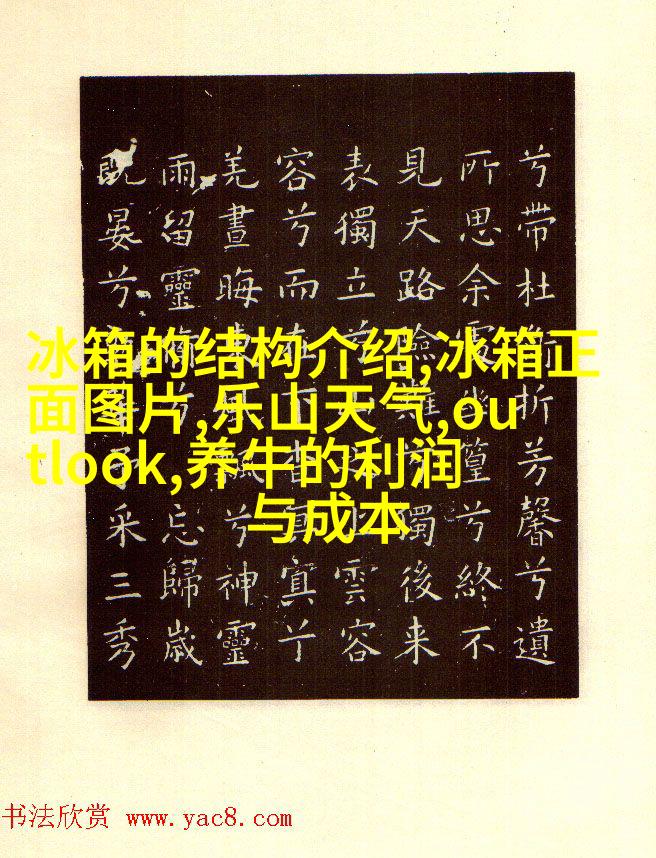 冰箱的结构介绍,冰箱正
面图片,乐山天气,ou
tlook,养牛的利润
与成本
兮帶杜衡折芳馨兮遺
所思余處幽篁兮終不
見天路險難兮獨後来
表獨立雲容
容兮而在下杳冥冥兮
羌晝晦東風飄兮神靈
雨留靈忘歸歲
既晏兮予采三秀
书法欣赏 www.yac8.com